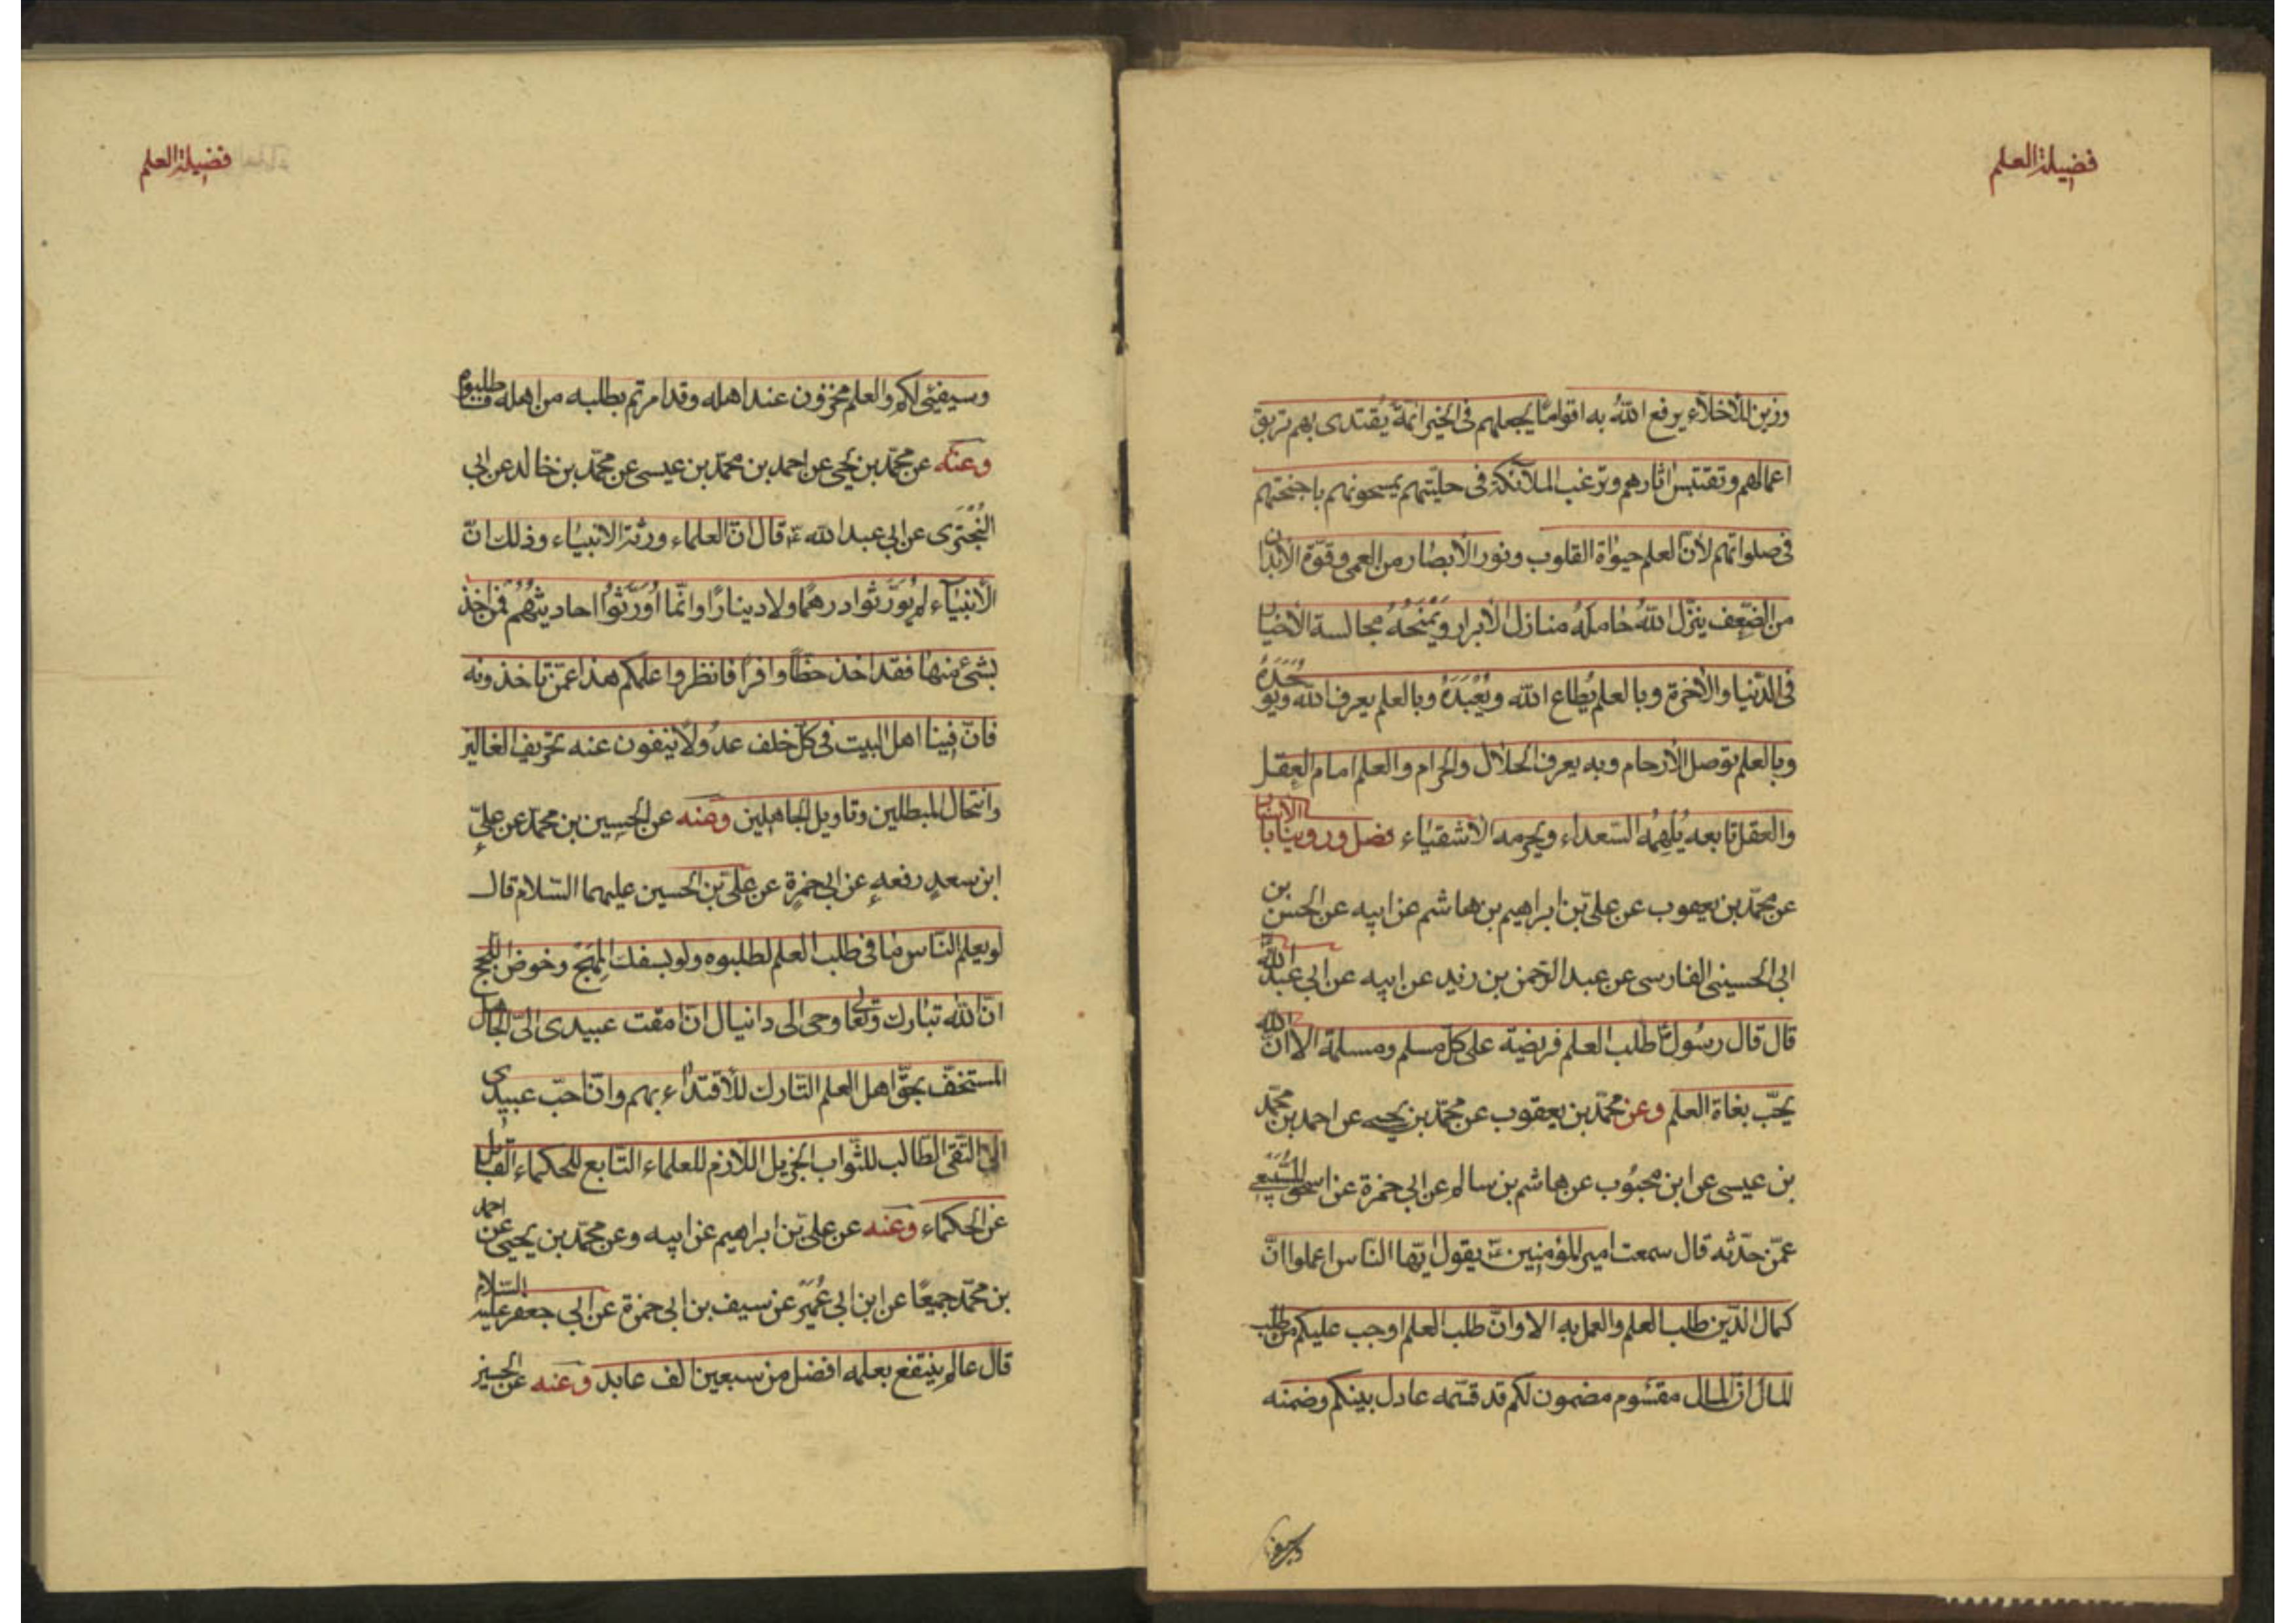 فضيلة العلم
وزين للأخلاء يرفع الله به اقواما يجعلهم فى الخير ائمة يقتدى بهم تربق
اعمالهم وتقتبس اثارهم وترغب الملائكة فى حليتهم يمسحونهم باجنحتهم
فى صلواتهم لأن العلم حيوة القلوب ونور الأبصار من العمى وقوة الأبدان
من الضعف ينزل الله حامله منازل الأبرار ويمنحه مجالسة الأخيار
فى الدنيا والأخرة وبالعلم يطاع الله ويعبده وبالعلم يعرف الله ويوحده
وبالعلم توصل الأرحام وبه يعرف الحلال والحرام والعلم امام العقل
والعقل تابعه يلهمه السعداء ويحرمه الأشقياء فصل وروينا بالاسناد
عن محمد بن يعقوب عن على بن ابراهيم بن هاشم عن ابيه عن الحسن بن
ابى الحسينى الفارسى عن عبد الرحمن بن زيد عن ابيه عن ابى عبد الله
قال قال رسول الله طلب العلم فريضة على كل مسلم ومسلمة الا ان الله
يحب بغاة العلم وعن محمد بن يعقوب عن محمد بن يحيى عن احمد بن محمد
بن عيسى عن ابن محبوب عن هاشم بن سالم عن ابى حمزة عن اسحق السبيعى
عمن حدثه قال سمعت امير المؤمنين ع يقول ايها الناس اعلموا ان
كمال الدين طلب العلم والعمل به الا وان طلب العلم اوجب عليكم من طلب
المال ان المال مقسوم مضمون لكم قد قسمه عادل بينكم وضمنه
فضيلة العلم
وسيفئى لكم والعلم مخزون عند اهله وقد امرتم بطلبه من اهله فاطلبوه
وعنه عن محمد بن يحيى عن احمد بن محمد بن عيسى عن محمد بن خالد عن ابى
البخترى عن ابى عبد الله ع قال ان العلماء ورثة الانبياء وذلك ان
الأنبياء لم يورثوا درهما ولا دينارا وانما اورثوا احاديثهم فمن اخذ
بشئ منها فقد اخذ حظا وافرا فانظروا علمكم هذا عمن تاخذونه
فان فينا اهل البيت فى كل خلف عدولا ينفون عنه تحريف الغالين
وانتحال المبطلين وتاويل الجاهلين وعنه عن الحسين بن محمد عن على
ابن سعد رفعه عن ابى حمزة عن على بن الحسين عليهما السلام قال
لو يعلم الناس ما فى طلب العلم لطلبوه ولو بسفك المهج وخوض اللجج
ان الله تبارك وتعالى اوحى الى دانيال ان امقت عبيدى الى الجاهل
المستخف بحق اهل العلم التارك للأقتداء بهم وان احب عبيدى
الى التقى الطالب للثواب الجزيل اللازم للعلماء التابع للحكماء القابل
عن الحكماء وعنه عن على بن ابراهيم عن ابيه وعن محمد بن يحيى عن احمد
بن محمد جميعا عن ابن ابى عمير عن سيف بن ابى حمزة عن ابى جعفر عليه السلام
قال عالم ينتفع بعلمه افضل من سبعين الف عابد وعنه عن الحسين